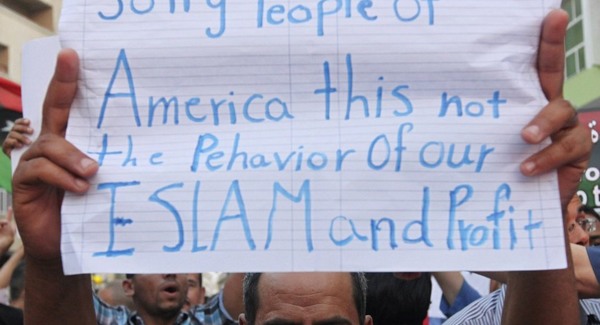 Sorry People of
America this not
the Pehavior Of our
ISLAM and Profit